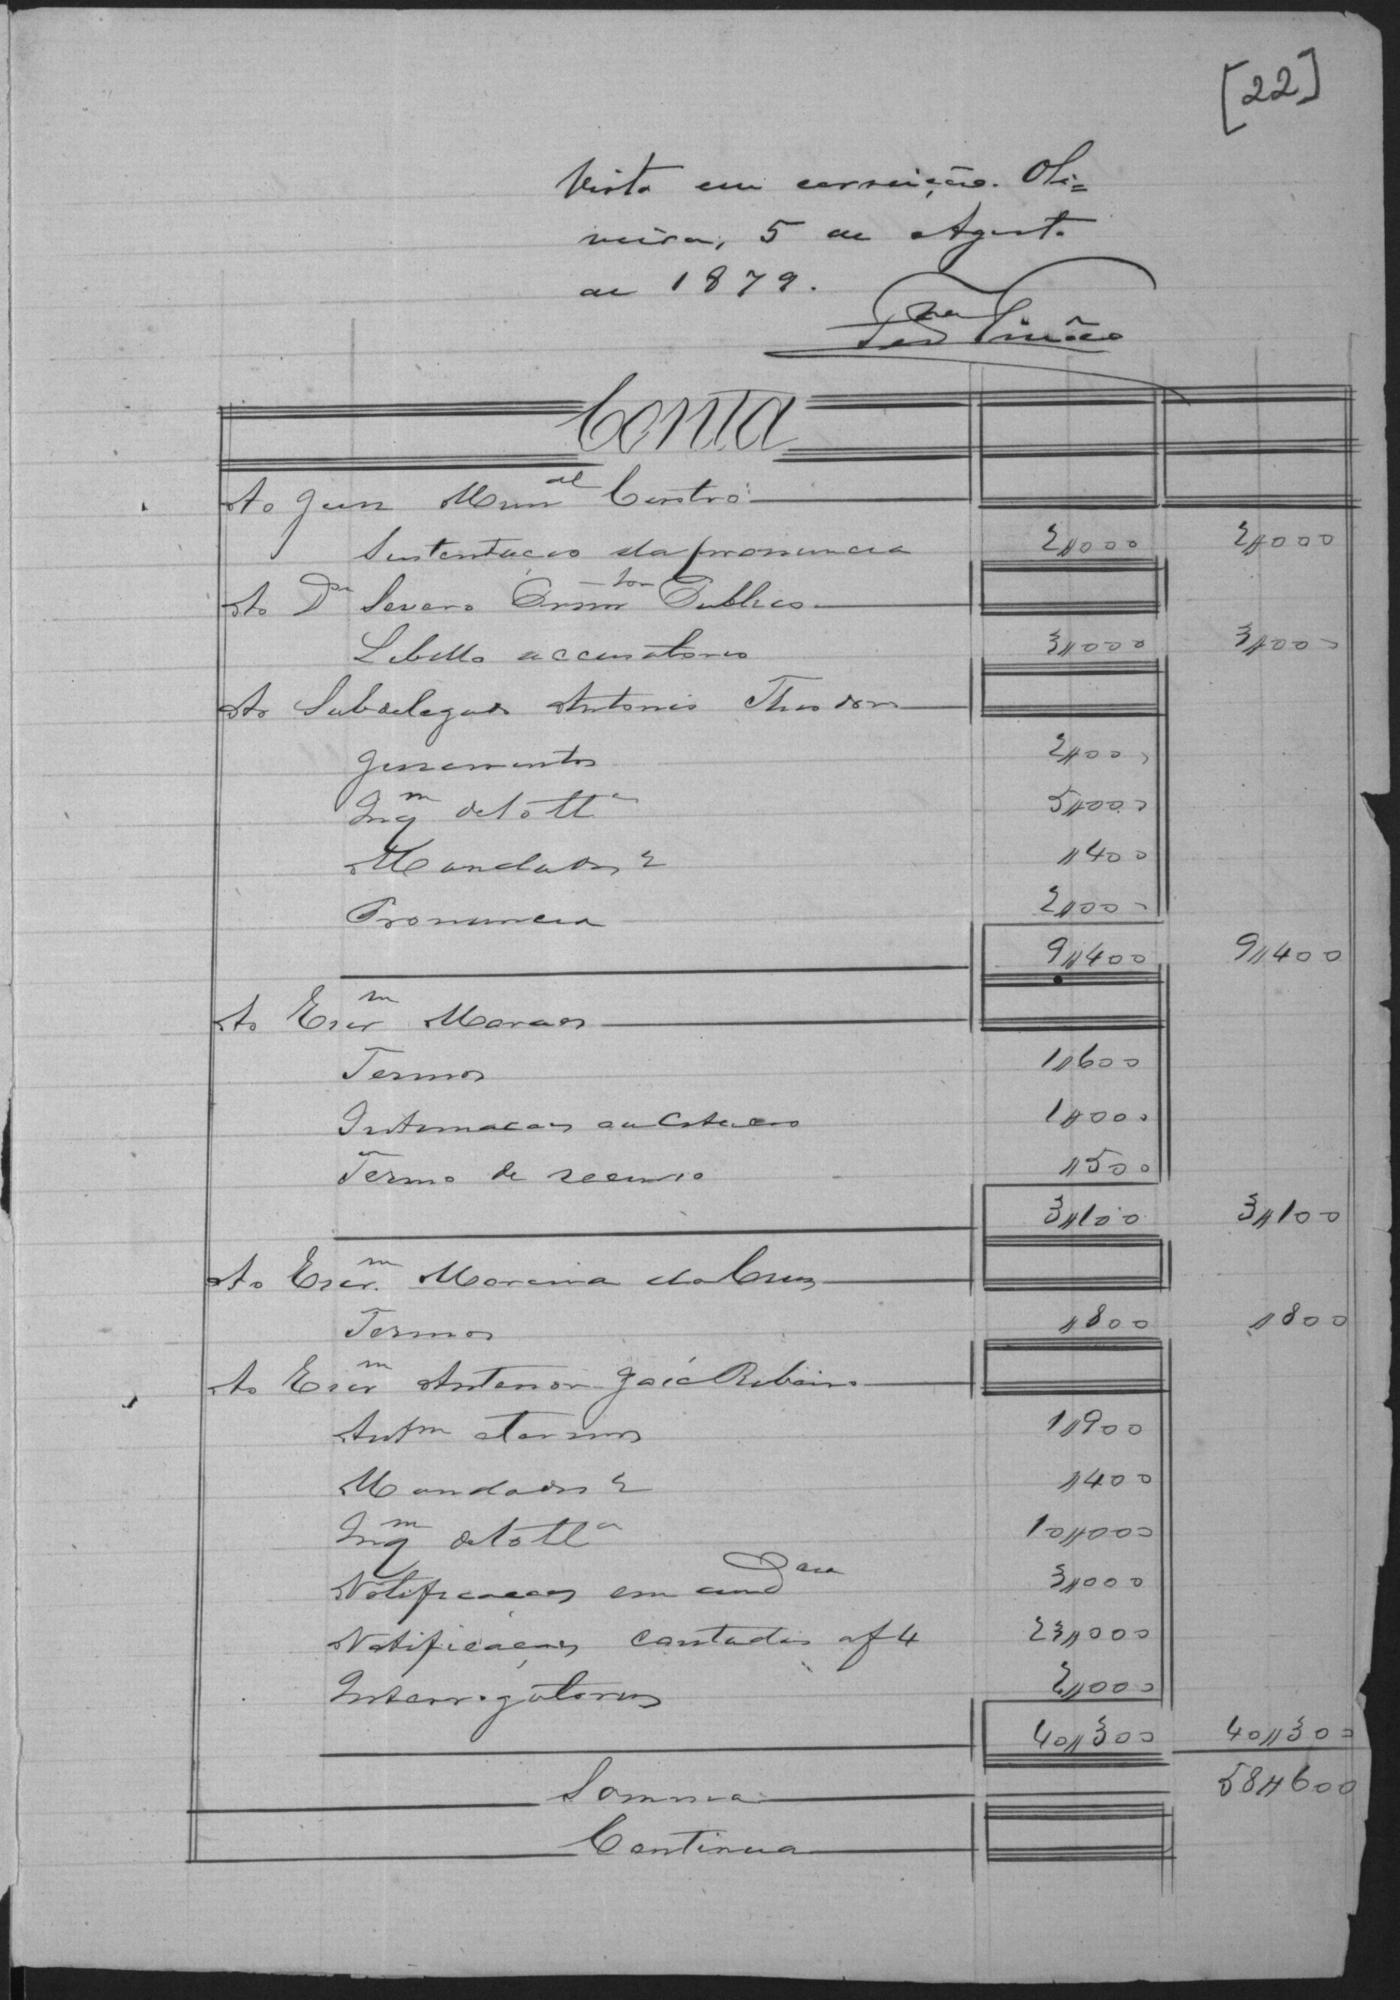 [22]
Visto em correição. Oli=
veira, 5 de Agosto
de 1879.
Conta
Ao Juiz Mun.al Castro
Sustentação da pronuncia 2,,000 2,,000
Ao Dr Severo Promtor Publico
Libello accusatorio 3,,000 3,,000
Ao Subdelegado Antonio Theodoro
Juramentos 2,,000
Inqm de 10 tta 5,,000
Mandados 2 ,,400
Pronuncia 2,,000
9,,400 9,,400
Ao Escrm Moraes
Termos 1,,600
Intimacão ou Citacão 1,,000
Termo de recurso ,,500
3,,100 3,,100
Ao Escr.m Moreira da Cruz
Termos ,,800 ,,800
Ao Escrm Antenor José Ribeiro
Autm e termos 1,,900
Mandados 2 ,,400
Inqm de 10 tta 10,,000
Notificacões em 3,,000
Notificações contadas af 4 23,,000
Interrogatorios 2,,000
40,,300 40,,300
Somma 58,,600
Continua